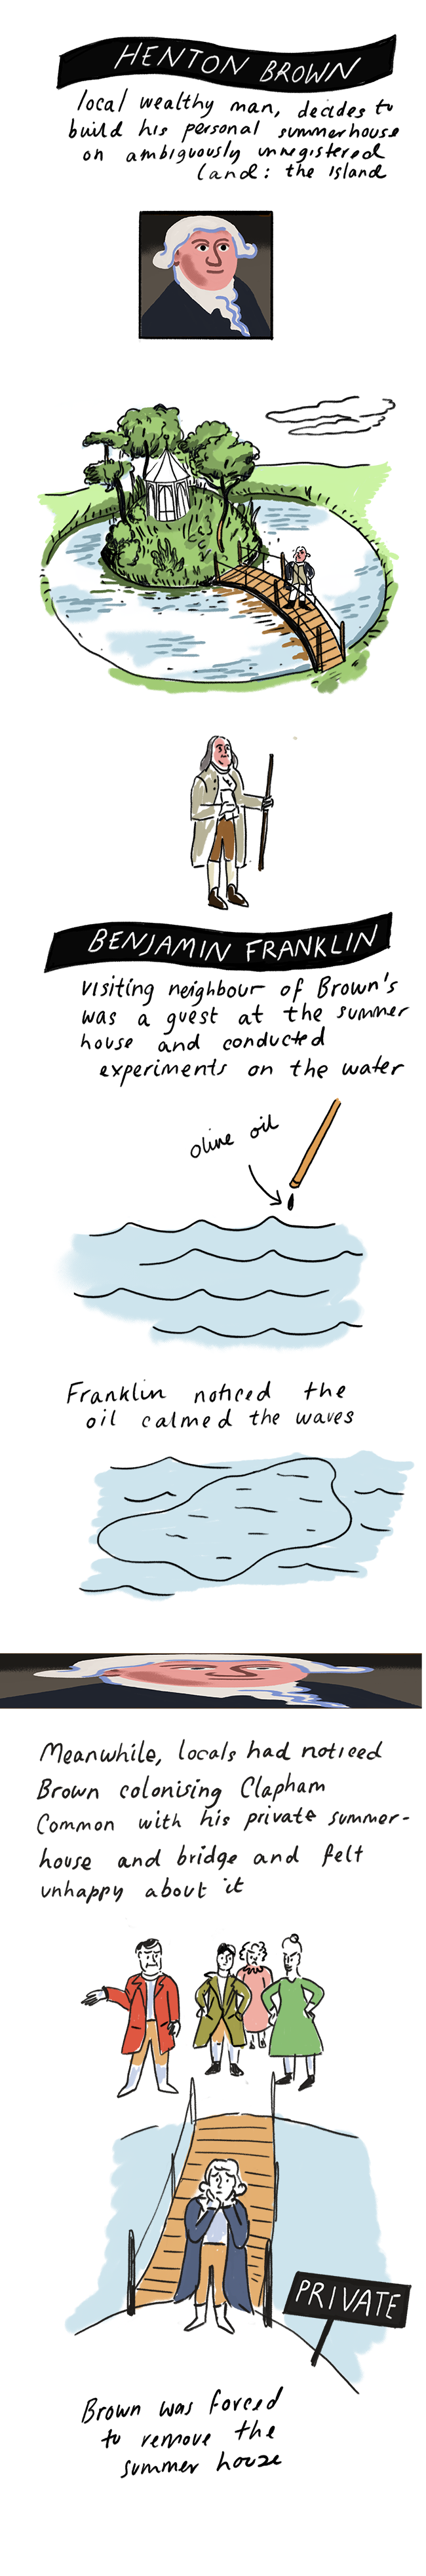 HENTON BROWN
local wealthy man, decides to
build his personal summerhouse
on ambiguously unregistered
land: the island
BENJAMIN FRANKLIN
visiting neighbour of Brown's
was a guest at the summer
house and conducted
experiments on the water
olive oil
Franklin noticed the
oil calmed the waves
Meanwhile, locals had noticed
Brown colonising Clapham
Common with his private summer-
house and bridge and felt
unhappy about it
PRIVATE
Brown was forced
to remove the
summer house